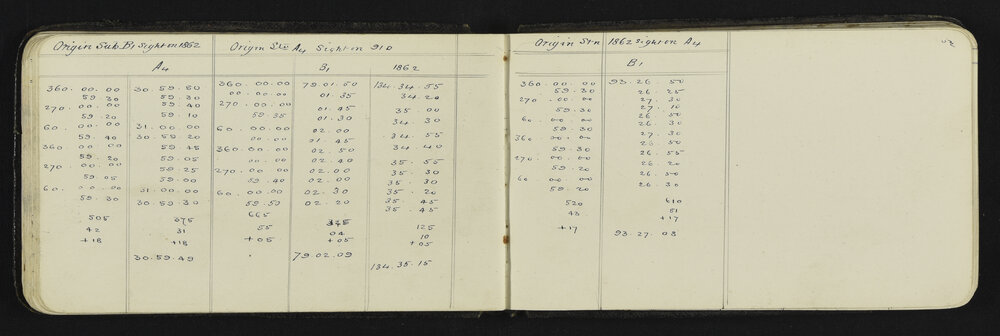 Origin Sub. B1 sight on 1862
A4
360. 00. 00 30. 59. 50
59. 30 59. 30
270. 00. 00 59. 40
59. 20 59. 10
60. 00. 00 31. 00. 00
59. 40 30. 59. 20
360. 00. 00 59. 45
59. 20 59. 05
270. 00. 00 59. 25
59. 05 59. 00
60. 00. 00 31. 00. 00
59. 30 30. 59. 30
505 375
42 31
+18 +18
30. 59. 49
Origin Stn A4 Sight on 910
B1 1862
360. 00. 00 79. 01. 50 134. 34. 55
00. 00. 00 01. 35 34. 20
270. 00. 00 01. 45 35. 00
59. 35 01. 30 34. 30
60. 00. 00 02. 00 34. 55
00. 00 01. 45 34. 40
360. 00. 00 02. 50 35. 55
00. 00 02. 40 35. 30
270. 00. 00 02. 00 35. 30
59. 40 02. 00 35. 20
60. 00. 00 02. 30 35. 45
59. 50 02. 20 35. 45
665 125
55 04 10
+05 +05 +05
79. 02. 09
134. 35. 15
Origin Stn 1862 sight on A4
B1
360. 00. 00 93. 26. 50
59. 30 26. 25
270. 00. 00 27. 30
59. 30 27. 10
60. 00. 00 26. 50
59. 30 26. 30
360. 00. 00 27. 30
59. 30 26. 50
270. 00. 00 26. 55
59. 20 26. 20
60. 00. 00 26. 50
59. 20 26. 30
520 610
43 51
+17 +17
93. 27. 08